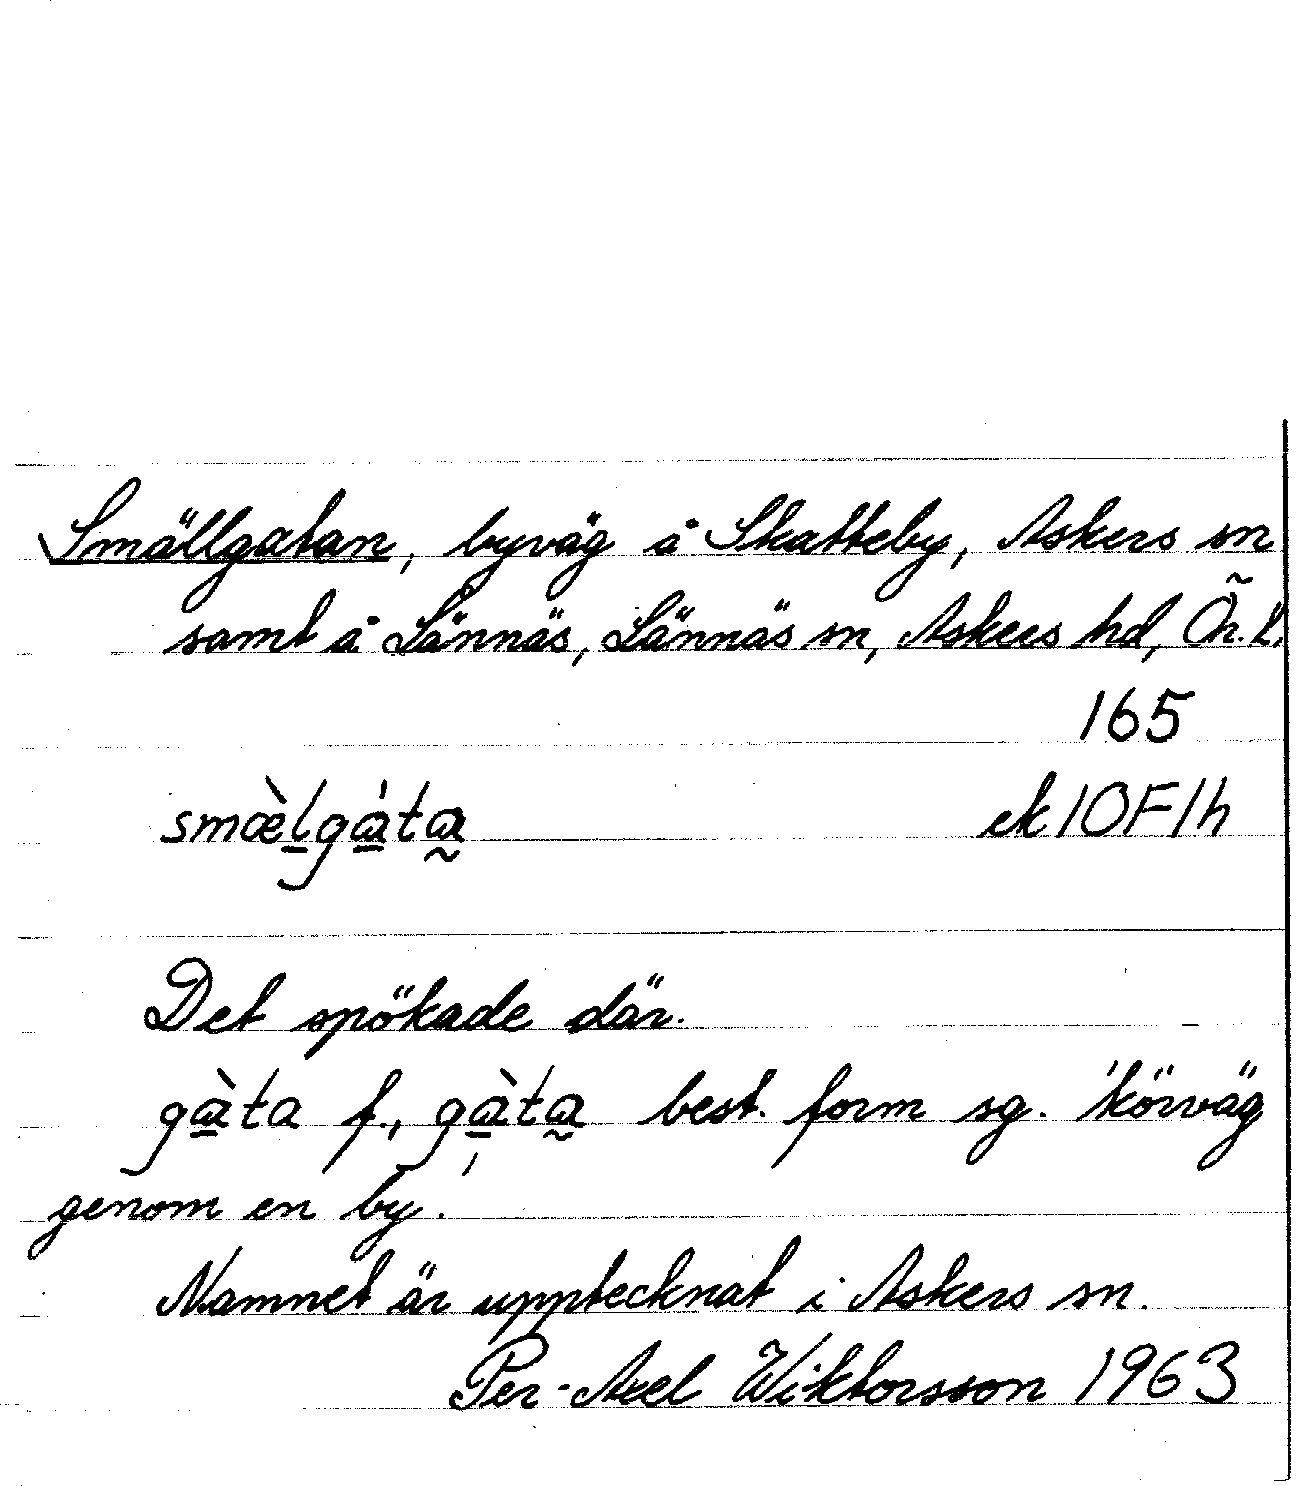 Smällgatan, byväg å Skatteby, Askers sn
samt å Lännäs, Lännäs sn, Askers hd, Ör. l.
165
smæ̀l̠gá̠ta̰ ek 10F1h
Det spökade där.
gà̠ta f., gà̠ta̰ best. form sg. 'körväg
genom en by.'
Namnet är upptecknat i Askers sn.
Per-Axel Wiktorsson 1963